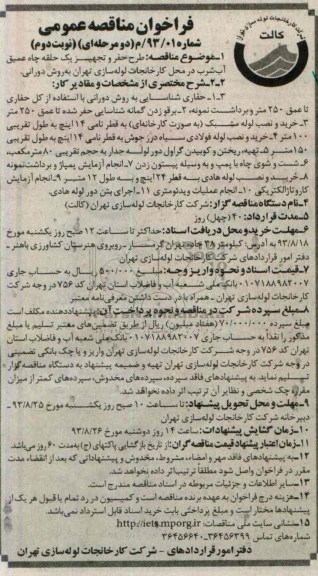 شرکت کارخانجات لوله سازی تهران
کالت
فراخوان مناقصه عمومی
شماره ۹۳/۰۱/م(دو مرحله‌ای) (نوبت دوم)
۱-موضوع مناقصه: طرح حفر و تجهیز یک حلقه چاه عمیق
آب شرب در محل کارخانجات لوله‌سازی تهران به‌روش دورانی.
۲-۲-شرح مختصری از مشخصات و مقادیر کار:
۲-۱-حفاری شناسایی به روش دورانی با استفاده از گل حفاری
تا عمق ۲۵۰ متر و برداشت نمونه، ۲-برقو زدن گمانه شناسایی حفر شده تا عمق ۲۵۰ متر
۳-خرید و نصب لوله مشبک (به صورت کارخانه‌ای) به قطر نامی ۱۴ اینچ به طول تقریبی
۱۰۰ متر ۴-خرید و نصب لوله فولادی سیاه درز جوش به قطر نامی ۱۴ اینچ به طول تقریبی
۱۵۰ متر ۵-تهیه، ریختن و کوبیدن گراول دور لوله جدار به حجم تقریبی ۸۰ متر مکعب،
۶-شست و شوی چاه با پمپ و به وسیله پیستون زدن ۷-انجام آزمایش پمپاژ و برداشت نمونه
۸-خرید و نصب لوله هادی به قطر ۲۴ اینچ و به طول ۱۲ متر ۹-انجام آزمایش
کاروتاژ الکتریکی ۱۰-انجام عملیات ویدئومتری ۱۱-اجرای بتن دور لوله هادی.
۴-نام دستگاه مناقصه گزار: شرکت کارخانجات لوله سازی تهران (کالت)
۵-مدت قرارداد: ۴۰ (چهل) روز
۶-مهلت خرید و محل دریافت اسناد: حداکثر تا ساعت ۱۲ صبح روز یکشنبه مورخ
۹۳/۸/۱۸ به آدرس: کیلومتر ۳۸ جاده تهران گرمسار - روبروی هنرستان کشاورزی باهنر -
دفتر امور قراردادهای شرکت کارخانجات لوله سازی تهران
۷-قیمت اسناد و نحوه واریز وجه: مبلغ ۵۰۰/۰۰۰ ریال به حساب جاری
۰۱۰۷۱۸۸۹۸۲۰۰۷ بانک ملی شعبه آب و فاضلاب استان تهران کد ۷۵۶ در وجه شرکت
کارخانجات لوله‌سازی تهران - همراه با در دست داشتن معرفی‌نامه معتبر
۸-مبلغ سپرده شرکت در مناقصه و نحوه پرداخت آن: پیشنهاددهنده مکلف است
مبلغ سپرده ۷۰/۰۰۰/۰۰۰ (هفتاد میلیون) ریال از طریق تضمین‌های معتبر تسلیم یا مبلغ
مذکور را نقداً به حساب جاری ۰۱۰۷۱۸۸۹۸۲۰۰۷ بانک ملی شعبه آب و فاضلاب استان
تهران کد ۷۵۶ در وجه شرکت کارخانجات لوله‌سازی تهران واریز و یا چک بانکی تضمینی
در وجه کارخانجات لوله سازی تهران تهیه و ضمیمه پیشنهاد به دستگاه مناقصه گزار
تسلیم نماید به پیشنهادهای فاقد سپرده، سپرده‌های مخدوش، سپرده‌های کمتر از میزان
مقرر، چک شخصی و نظایر آن ترتیب اثر داده نخواهد شد.
۹-مهلت و محل تحویل پیشنهاد: تا ساعت ۱۰ صبح روز یکشنبه مورخ ۹۳/۸/۲۵ -
دبیرخانه شرکت کارخانجات لوله‌سازی تهران
۱۰-زمان گشایش پیشنهادات: ساعت ۱۴ روز دوشنبه مورخ ۹۳/۸/۲۶
۱۱-زمان اعتبار پیشنهاد قیمت مناقصه گران: از تاریخ بازگشایی پاکتهای (ج) به‌مدت ۶۰ روز می‌باشد.
۱۲-به پیشنهادهای فاقد مهر و امضاء، مشروط، مخدوش و پیشنهاداتی که بعد از انقضاء مدت
مقرر در فراخوان واصل شود مطلقاً ترتیب اثر داده نخواهد شد.
۱۳-سایر اطلاعات و جزئیات مربوطه در اسناد مناقصه مندرج است.
۱۴-هزینه درج فراخوان به عهده برنده مناقصه است و کمیسیون در رد تمام یا قبول هر یک از
پیشنهادها مختار است و مبلغ پرداختی بابت خرید اسناد قابل استرداد نمی‌باشد.
۱۵-نشانی سایت ملی مناقصات: http://iets.mporg.ir
شماره‌های تماس ۳۶۴۵۶۳۹۹-۳۶۴۵۶۶۴۰
دفتر امور قراردادهای - شرکت کارخانجات لوله‌سازی تهران